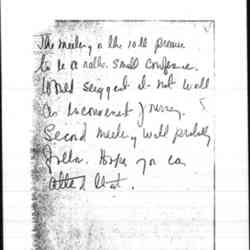 The meeting on the 10th promise
to be a rather small conference.
Would suggest it is not worth
an inconvenient journey.
Second meeting will probably
follow. Hope you can
attend that.